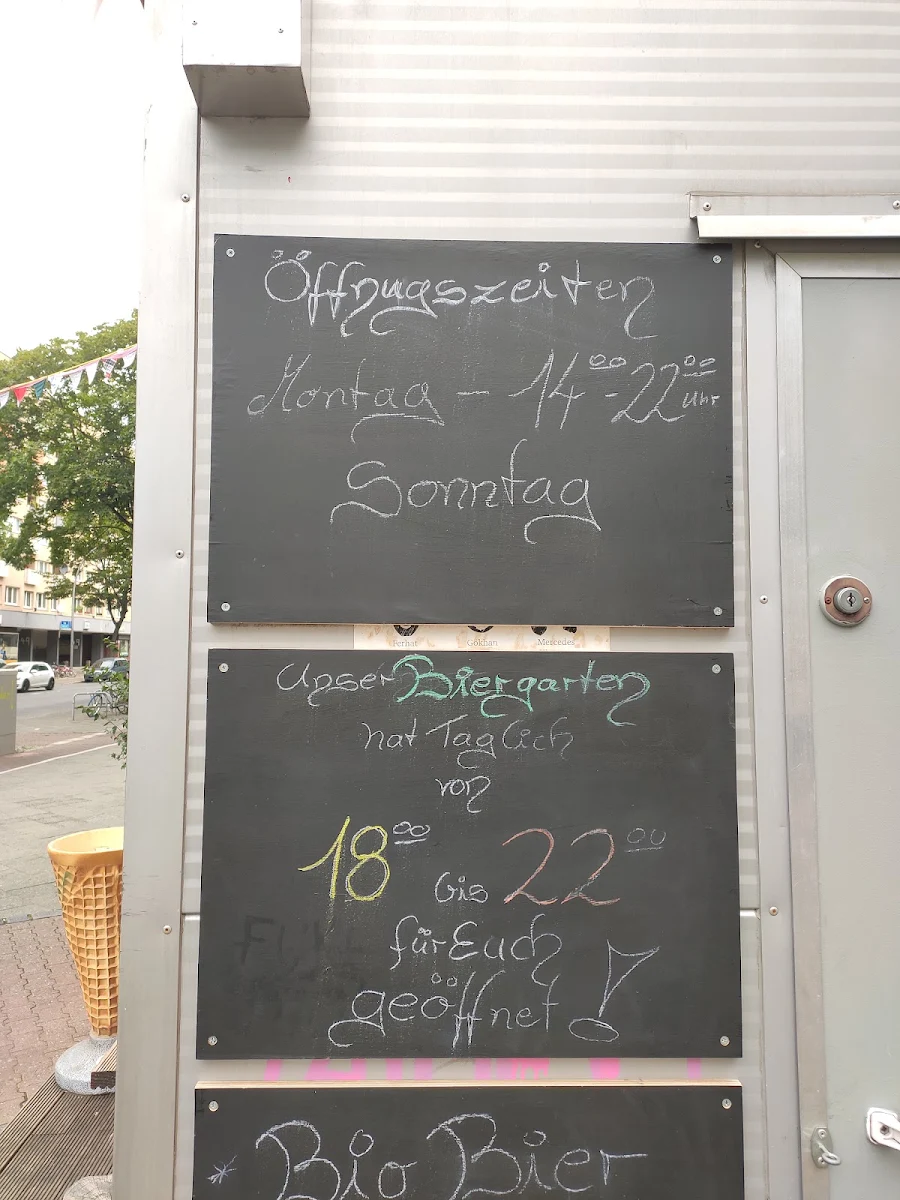 Öffnugszeiten
Montag - 14⁰⁰-22⁰⁰ Uhr
Sonntag
Ferhat Gökhan Mercedes
Unser Biergarten
hat Täglich
von
18⁰⁰ bis 22⁰⁰
für Euch
geöffnet !
* Bio Bier